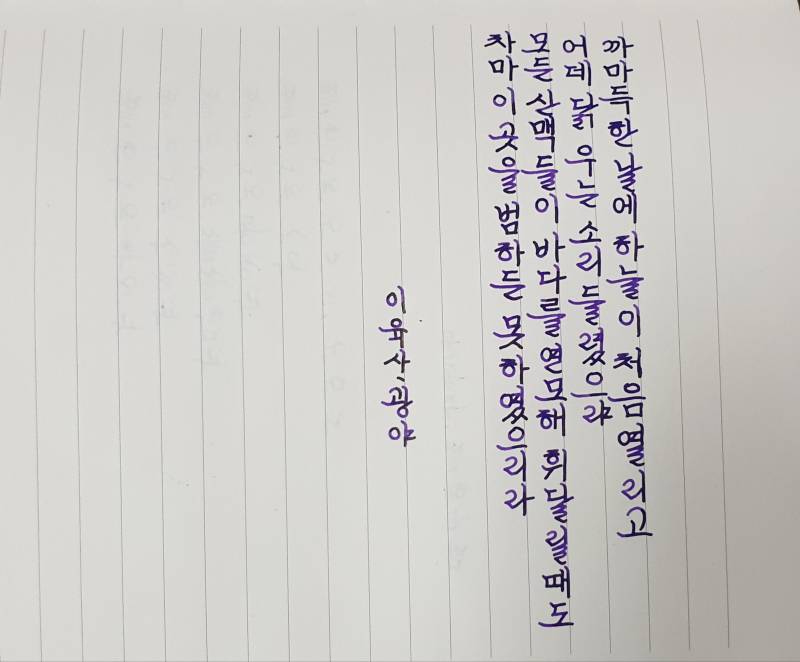 까마득한 날에 하늘이 처음 열리고
어데 닭 우는 소리 들렸으랴
모든 산맥들이 바다를 연모해 휘달릴때도
차마 이곳을 범하든 못하였으리라
이육사, 광야